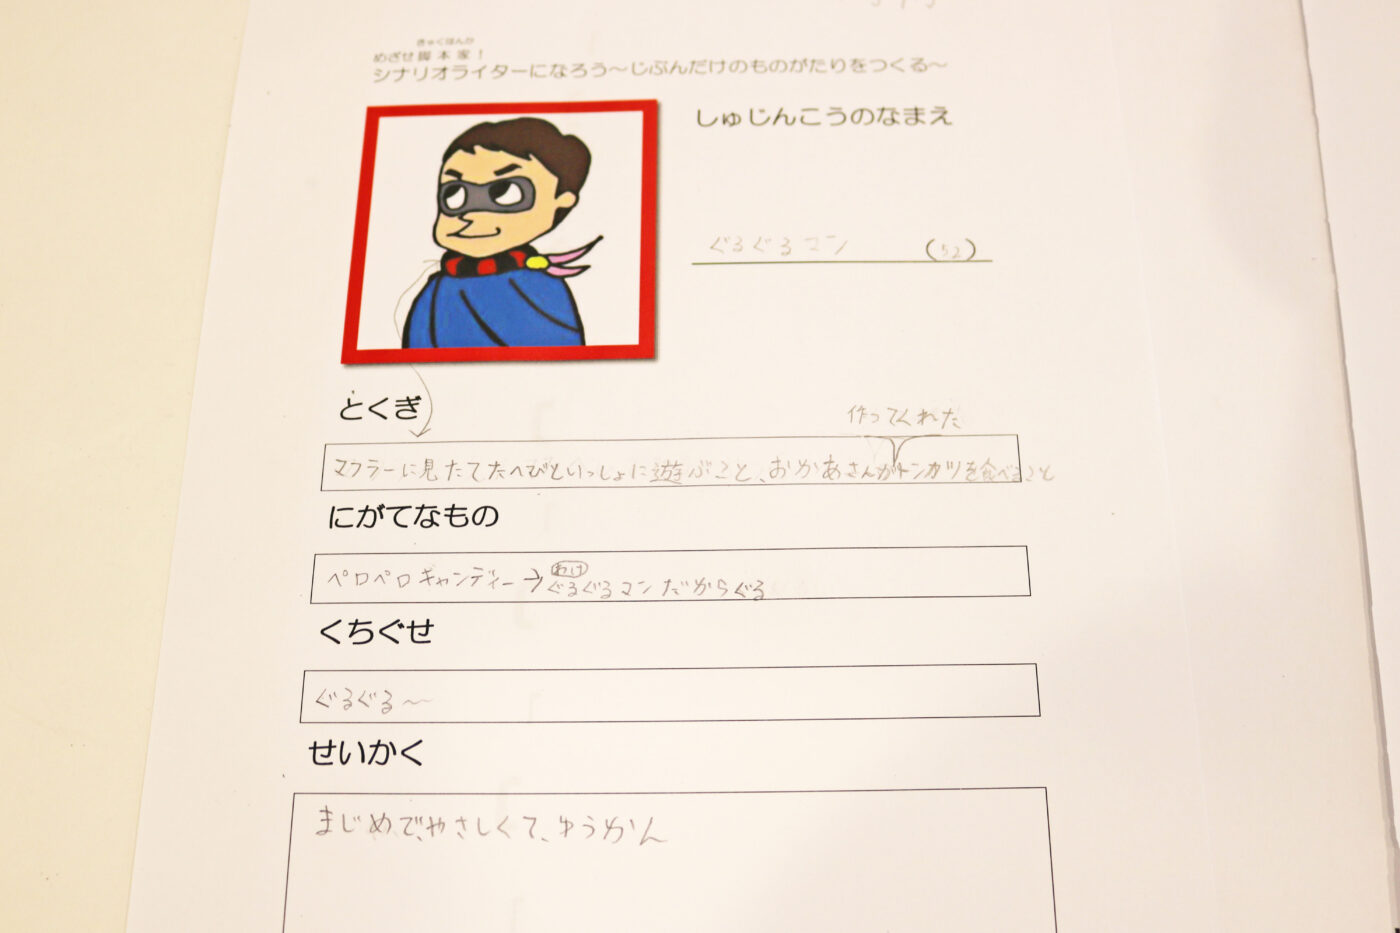 きゃくほんか
めざせ脚本家！
シナリオライターになろう～じぶんだけのものがたりをつくる～
しゅじんこうのなまえ
ぐるぐるマン (52)
とくぎ
作ってくれた
マフラーに見たてたへびといっしょに遊ぶこと、おかあさんがトンカツを食べること
にがてなもの
わけ
ペロペロキャンディー→ぐるぐるマンだからぐる
くちぐせ
ぐるぐる～～
せいかく
まじめで、やさしくて、ゆうかん